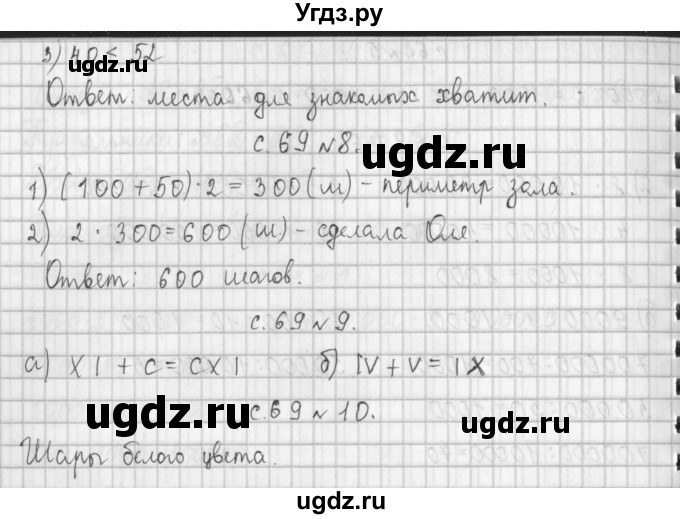 Угдз.ру
3) 40 < 52
ugdz.ru
Ответ: места для знакомых хватит.
с. 69 № 8.
ugdz.ru
ugdz.ru
1) (100 + 50) · 2 = 300 (ш) – периметр зала.
2) 2 · 300 = 600 (ш) – сделала Оля.
Ответ: 600 шагов.
с. 69 № 9.
а) XI + C = CXI б) IV + V = IX
ugdz.ru
с. 69 № 10.
ugdz.ru
Шары белого цвета.
ugdz.ru
ugdz.ru